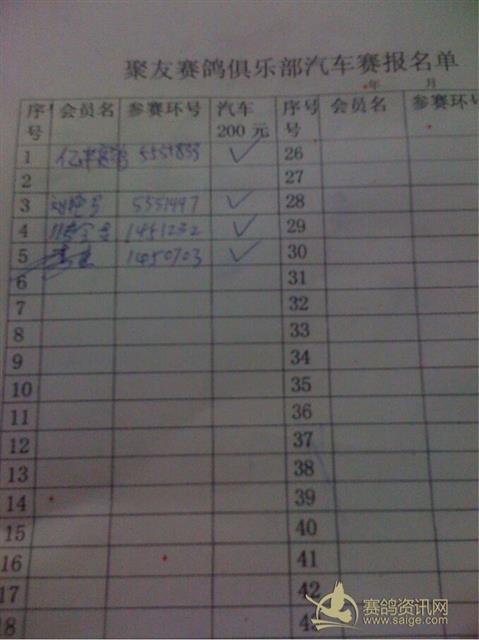 聚友赛鸽俱乐部汽车赛报名单
年 月
序号 会员名 参赛环号 汽车200元 序号号 会员名 参赛环号
1 5551833 ✓ 26
2 27
3 5551497 ✓ 28
4 1451232 ✓ 29
5 1450703 ✓ 30
6 31
7 32
8 33
9 34
10 35
11 36
12 37
13 38
14 39
15 40
16 41
17 42
18
赛鸽资讯网
www.saige.com